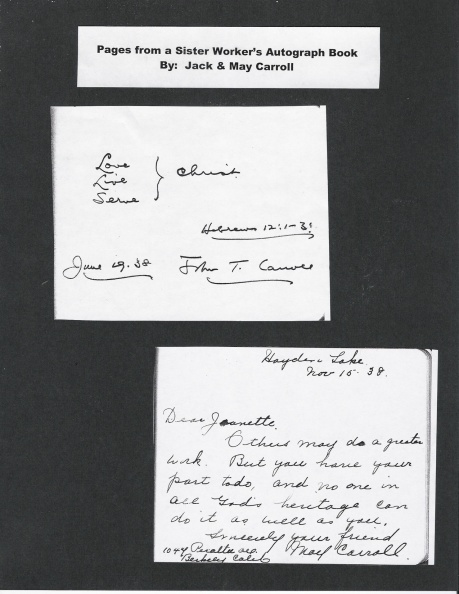 Pages from a Sister Worker's Autograph Book
By: Jack & May Carroll
Love
Live
Serve
Christ.
Hebrews 12:1-3:
June 19.38 John T. Carroll
Hayden Lake
Nov 15-38.
Dear Jeanette.
Others may do a greater
work. But you have your
part to do, and no one in
all God's heritage can
do it as well as you.
Sincerely your friend
1044 Peralta Ave. May Carroll.
Berkeley Calif